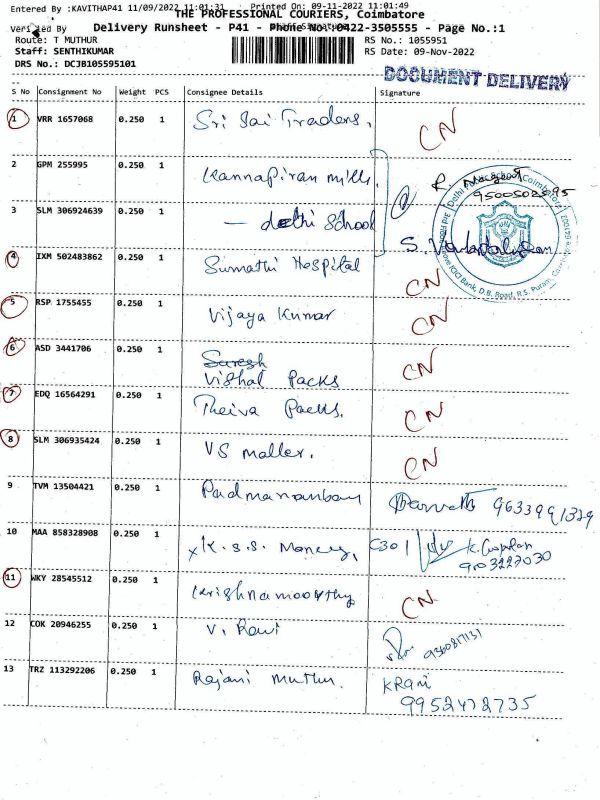 Entered By :KAVITHAP41 11/09/2022 11:01:31 Printed On: 09-11-2022 11:01:49
THE PROFESSIONAL COURIERS, Coimbatore
Verified By Delivery Runsheet - P41 - Phone No.:0422-3505555 - Page No.:1
Route: T MUTHUR RS No.: 1055951
Staff: SENTHIKUMAR RS Date: 09-Nov-2022
DRS No.: DCJB105595101
DOCUMENT DELIVERY
S No Consignment No Weight PCS Consignee Details Signature
1 VRR 1657068 0.250 1 Sri Sai Traders. CN
2 GPM 255995 0.250 1 Kannapiran mills.
3 SLM 306924639 0.250 1 — delhi school
4 IXM 502483862 0.250 1 Sumathi Hospital CN
5 RSP 1755455 0.250 1 Vijaya Kumar CN
6 ASD 3441706 0.250 1 Suresh CN
Vishal Packs
7 EDQ 16564291 0.250 1 Theiva Packs. CN
8 SLM 306935424 0.250 1 VS maller. CN
9 TVM 13504421 0.250 1 Padmananban
10 MAA 858328908 0.250 1 K.S.S. Money, C301
9103227030
11 WKY 28545512 0.250 1 Krishnamoorthy CN
12 COK 20946255 0.250 1 V. Ravi
13 TRZ 113292206 0.250 1 Rajani Muthu. KRani
9952472735